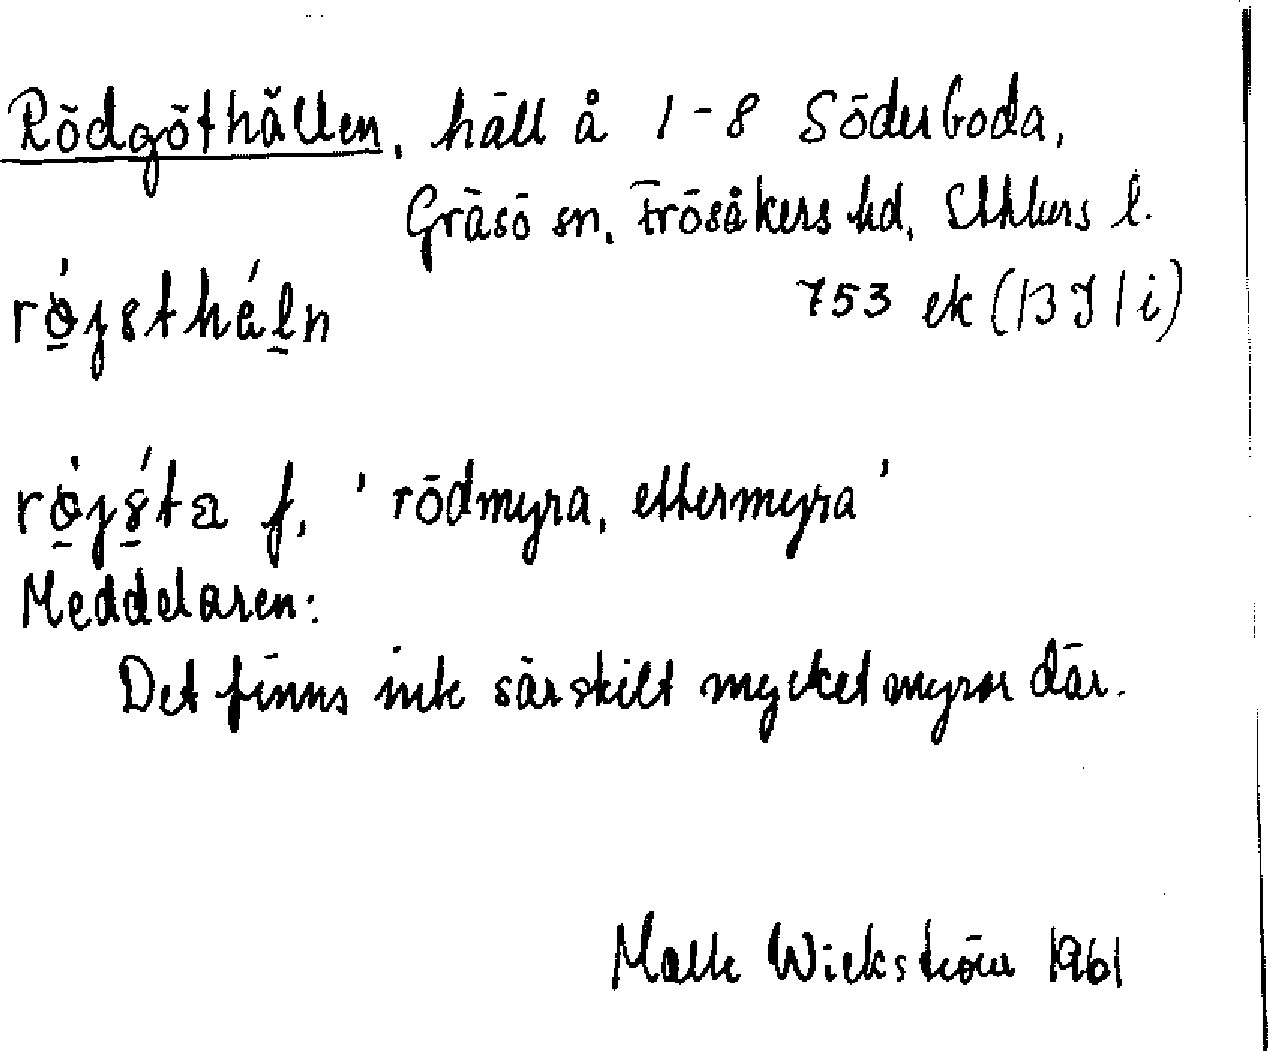 Rödgöthällen, häll å 1-8 Söderboda,
Gräsö sn, Frösåkers hd, Sthlms l.
753 ek (13 I 1 i)
f, 'rödmyra, ettermyra'
Meddelaren:
Det finns inte särskilt mycket myror där.
Malte Wickström 1961